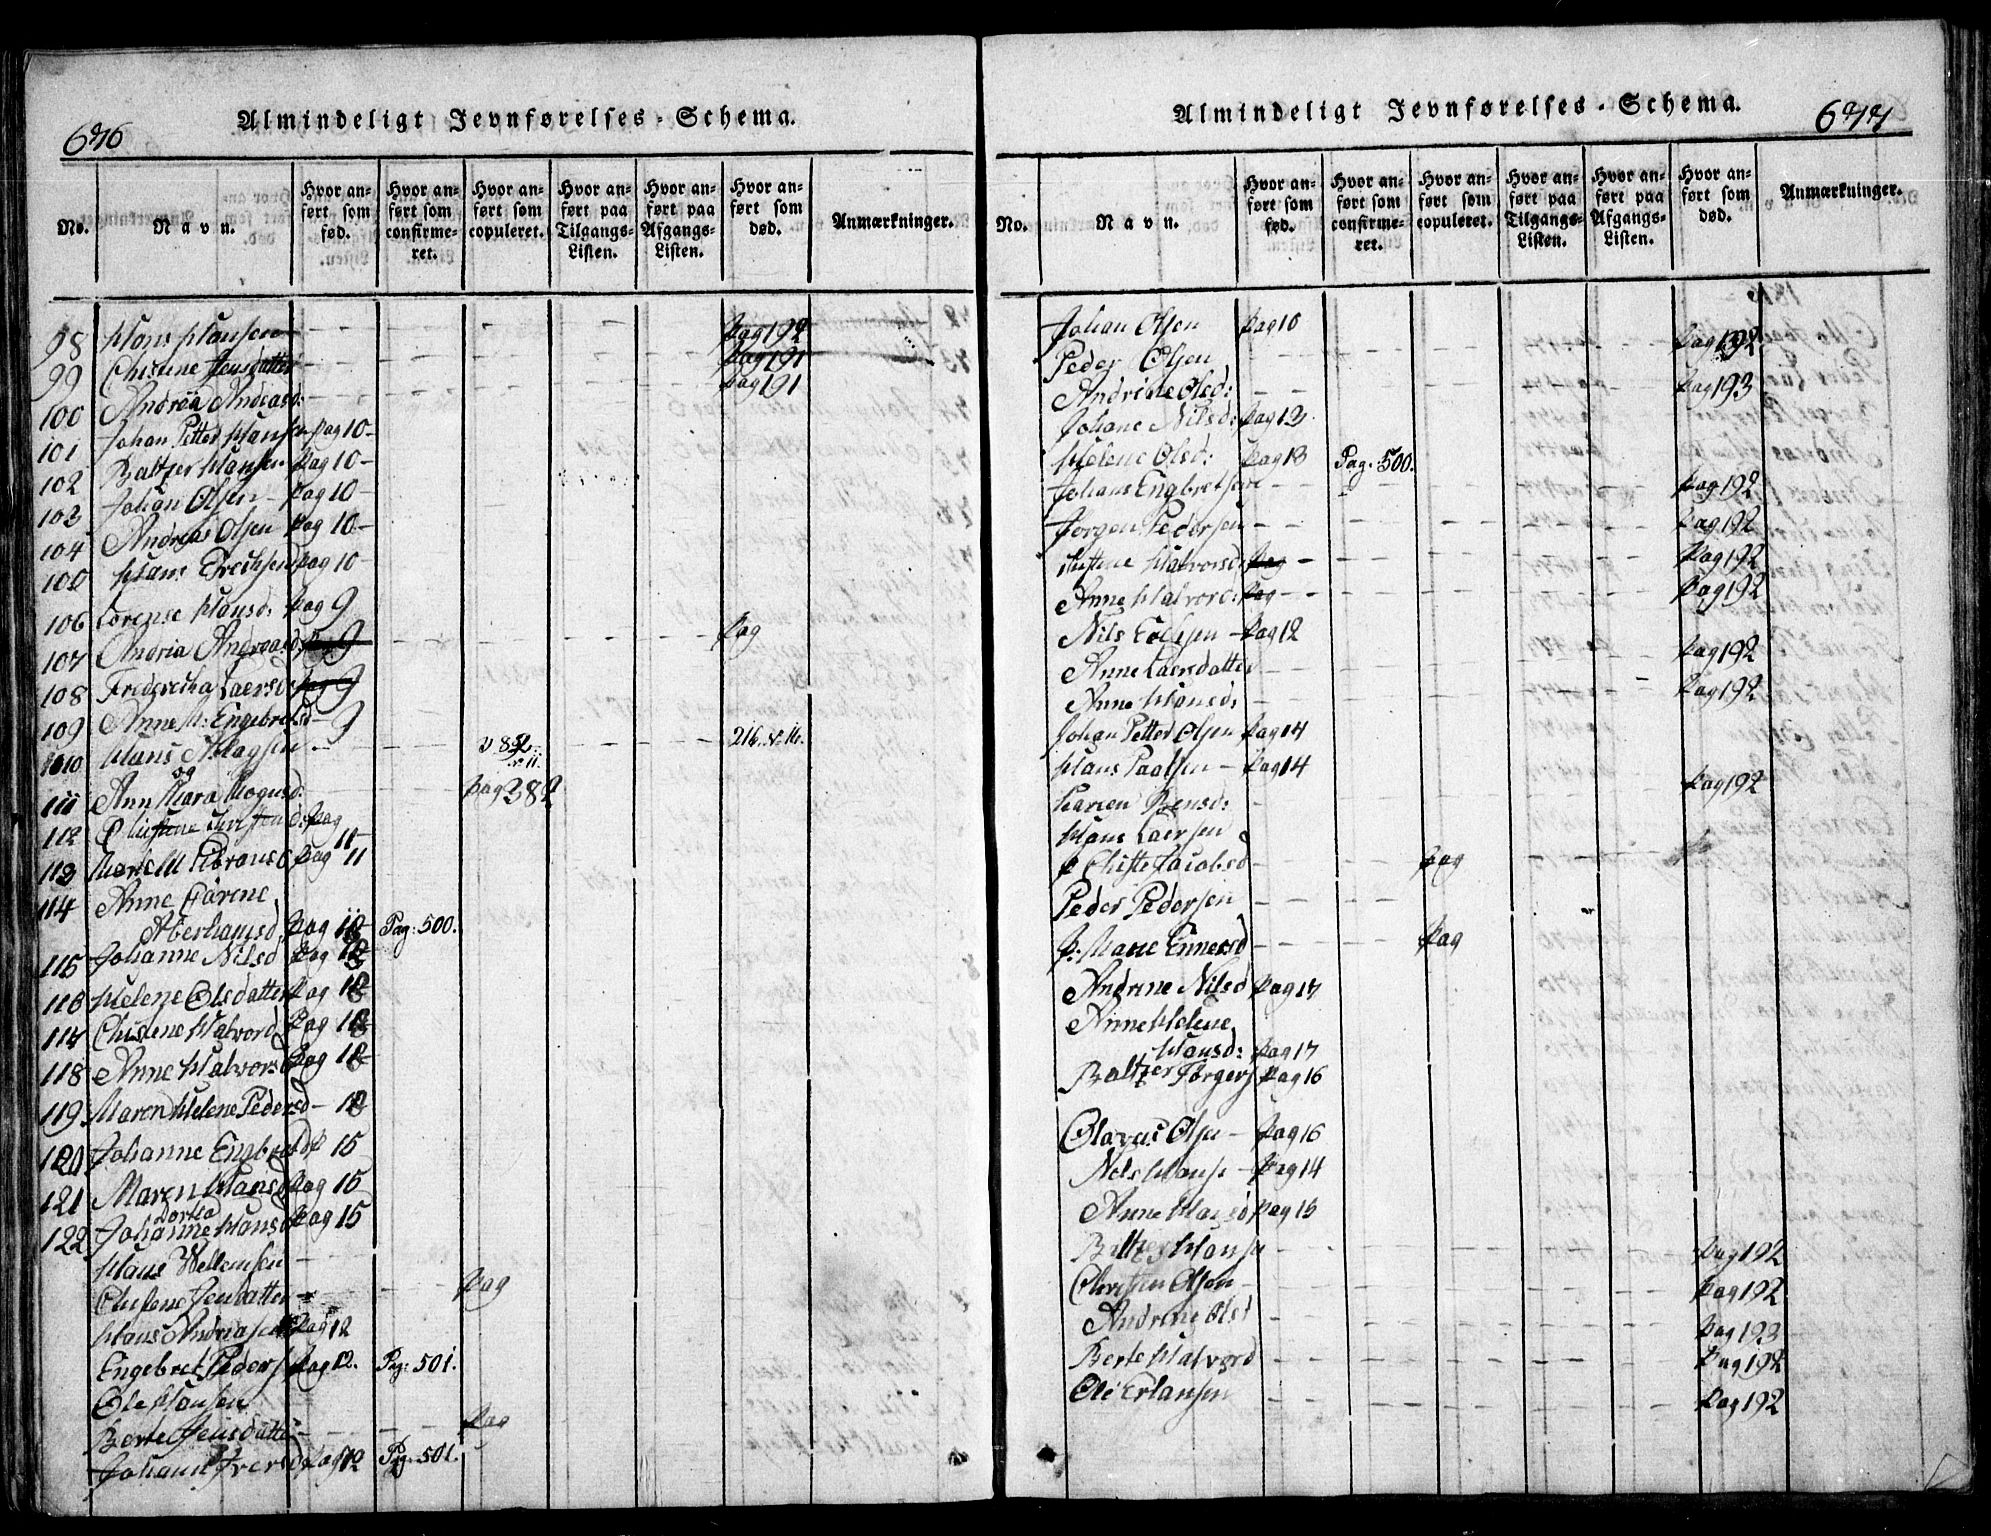 676
Almindeligt Jevnførelses-Schema.
No. Navn. Hvor anført som fød. Hvor anført som confirmeret. Hvor anført som copuleret. Hvor anført paa Tilgangs-Listen. Hvor anført paa Afgangs-Listen. Hvor anført som død. Anmærkninger.
98 Hans Hansen - - - - - Pag 192
99 Christine Jensdatter - - - - - Pag 191
100 Andrea Andreasd: - - - - - Pag 191
101 Johan Petter Hansen Pag 10-
102 Baltzer Hansen Pag 10-
103 Johan Olsen - Pag 10-
104 Andreas Olsen Pag 10-
105 Hans Erichsen Pag 10-
106 Lorense Hansd: Pag 9
107 Andria Andreasd: Pag 9 - - - - Pag
108 Fredericha Laersd: Pag 9
109 Anne M: Engebretsd - 9
110 Hans - - 216. N. 16.
og
111 Ann Mara Mognsd: - - Pag 382
112 Christine Pag 11
113 Marte M Pag 11
114 Anne Karine
Aberhamsd Pag 12 Pag: 500.
115 Johanne Nilsd Pag 12
116 Helene Olsdatter Pag 12
117 Christene Halvord Pag 12
118 Anne Halvorsd Pag 12
119 Maren Helene Pedersd - 12
120 Johanne Engbretsd P 15
121 Maren Hansd Pag 15
Dortea
122 Johanne Hansd Pag 15
Hans Wellemsen -
Christene Jensdatter - - Pag
Hans Andreasen Pag 12
Engebret Peders Pag 12. Pag: 501.
Ole Hansen
Berte Jensdatter - - Pag
Johan Iversd Pag 12 Pag: 501.
677
Almindeligt Jevnførelses-Schema.
No. Navn. Hvor anført som fød. Hvor anført som confirmeret. Hvor anført som copuleret. Hvor anført paa Tilgangs-Listen. Hvor anført paa Afgangs-Listen. Hvor anført som død. Anmærkninger.
Johan Olsen Pag 10
Peder Olsen - - - - - Pag 192
Andrine Olsd: - - - - - Pag 193
Johane Nilsd: Pag 13
Helene Olsd: Pag 13 Pag: 500.
Johans Engbretsen - - - - - Pag 192
Jorgen Pedersen - - - - - Pag 192
Halvorsd: Pag - - - - - Pag 192
Anne Halvord: Pag - - - - - Pag 192
Nils - Pag 12
Anne Laersdatter - - - - - Pag 192
Anne Hansd: - - - - - Pag 192
Johan Petter Olsen Pag 14
Hans Paalsen - Pag 14
Karen Jensd: - - - - - Pag 192
Hans Laersen
Jacobsd - - Pag - - -
Peder Pedersen
P. Marie Ennersd - - Pag
Andrine Nilsd Pag 17
Anne Helene
Hansd: Pag 17
Baltzer Jorgens Pag 16
Olavus Olsen - Pag 16
Nels Hanse - Pag 14
Anne Hansd Pag 15
Baltzer Hansen - - - - - Pag 192
Christen Olsen - - - - - Pag 192
Andrine Olsd - - - - - Pag 193
Berte Halvord - - - - - Pag 192
Ole Erlansen - - - - - Pag 192